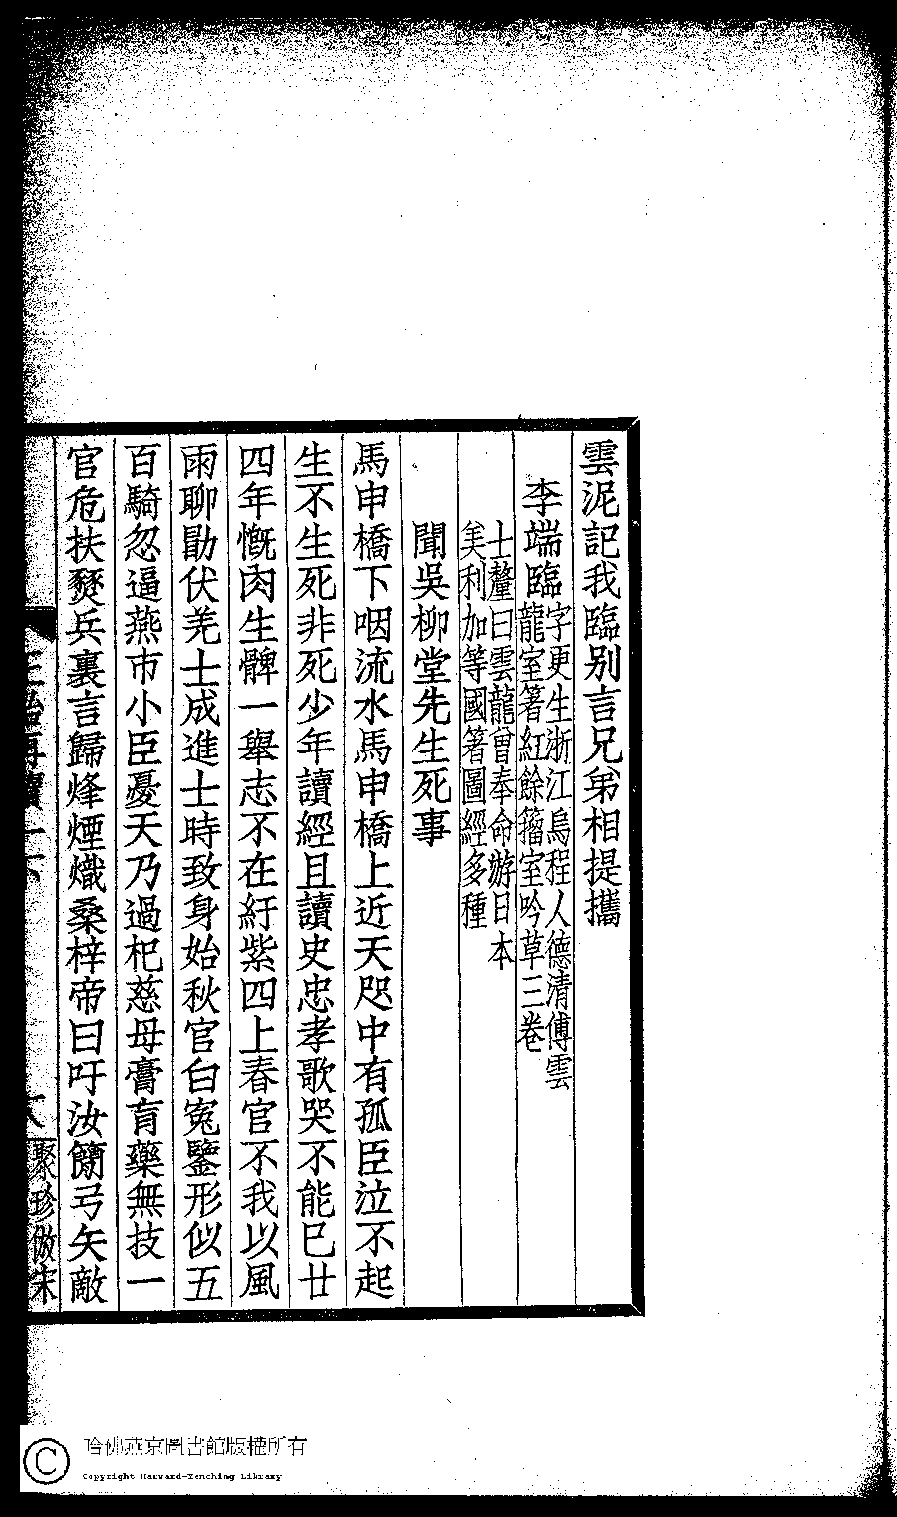 雲泥記我臨别言兄弟相提攜
李端臨字更生浙江烏程人德清傅雲
龍室著紅餘籀室吟草三卷
士釐曰雲龍曾奉命游日本
美利加等國著圖經多種
聞吳柳堂先生死事
馬申橋下咽流水馬申橋上近天咫中有孤臣泣不起
生不生死非死少年讀經且讀史忠孝歌哭不能已廿
四年慨肉生髀一舉志不在紆紫四上春官不我以風
雨聊勖伏羌士成進士時致身始秋官白寃鑒形似五
百騎忽逼燕市小臣憂天乃過杞慈母膏肓藥無技一
官危扶燹兵裏言歸烽煙熾桑梓帝曰吁汝簡弓矢敵
聚珍倣宋
哈佛燕京圖書館版權所有
Copyright Harvard-Yenching Library